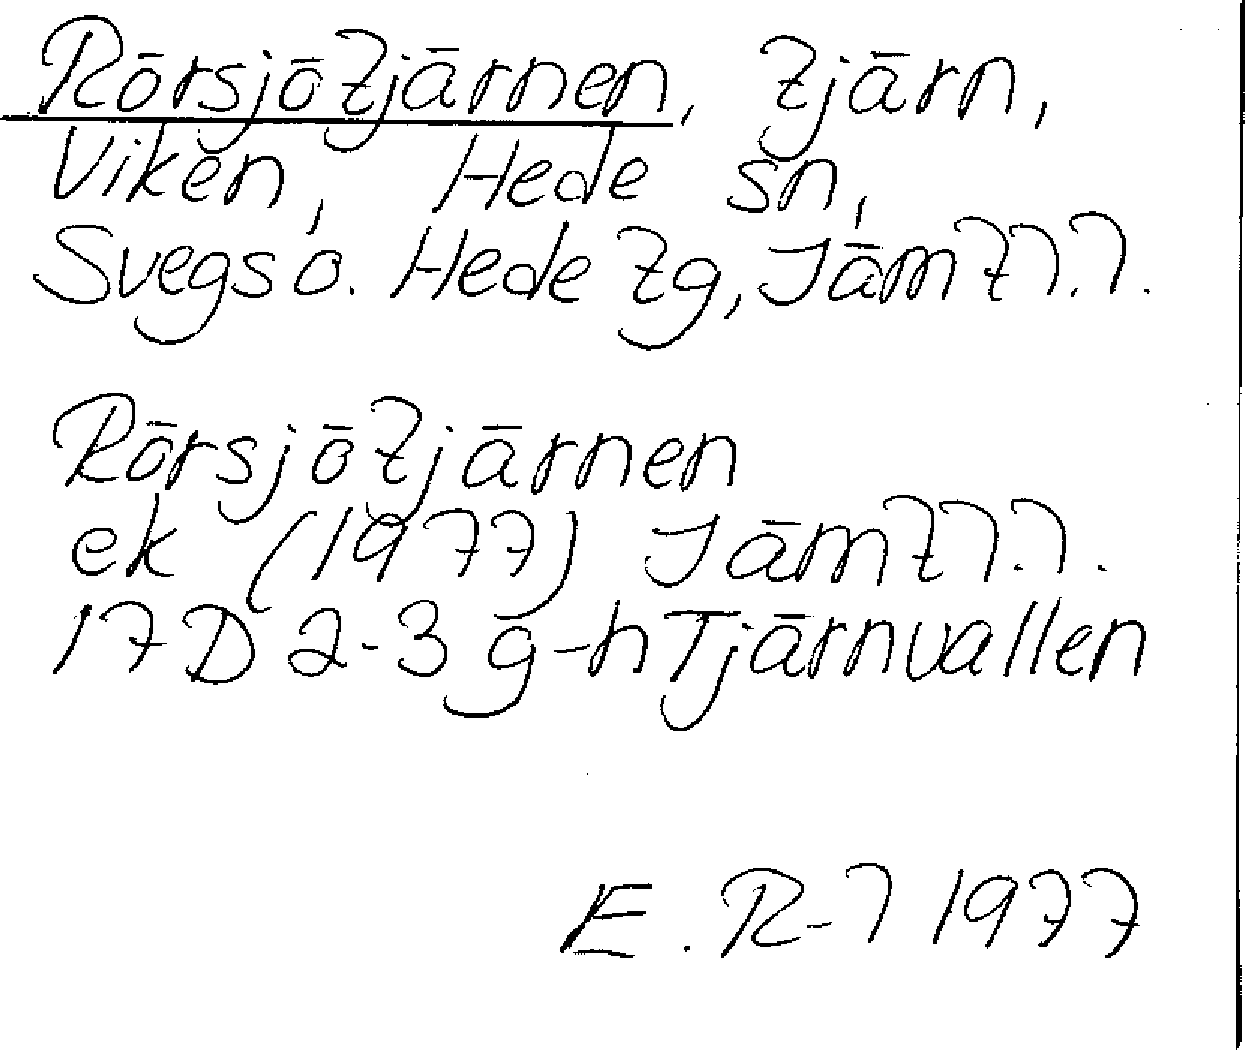 Rörsjötjärnen, tjärn,
Viken, Hede sn,
Svegs o. Hede tg, Jämtl. l.
Rörsjötjärnen
ek (1977) Jämtl. l.
17D 2-3 g-h Tjärnvallen
E. R-l 1977